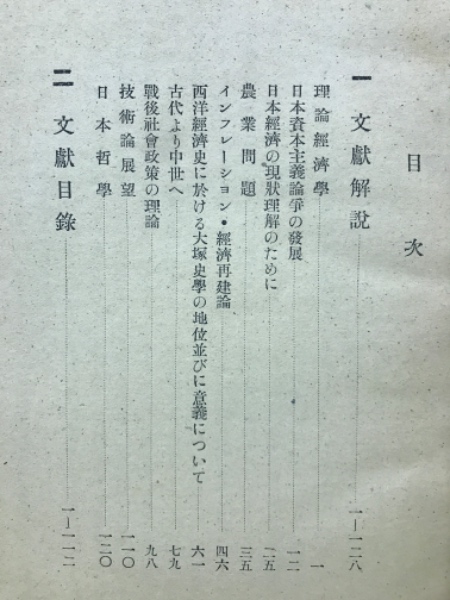 目次
一 文獻解說 一―一二八
理論經濟學 一
日本資本主義論爭の發展 一二
日本經濟の現狀理解のために 二五
農業問題 三五
インフレーション・經濟再建論 四六
西洋經濟史に於ける大塚史學の地位並びに意義について 六一
古代より中世へ 七九
戰後社會政策の理論 九八
技術論展望 一一〇
日本哲學 一二〇
二 文獻目錄 一―一一二